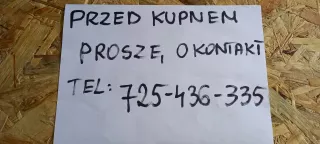 PRZED KUPNEM
PROSZĘ, O KONTAKT
TEL: 725-436-335